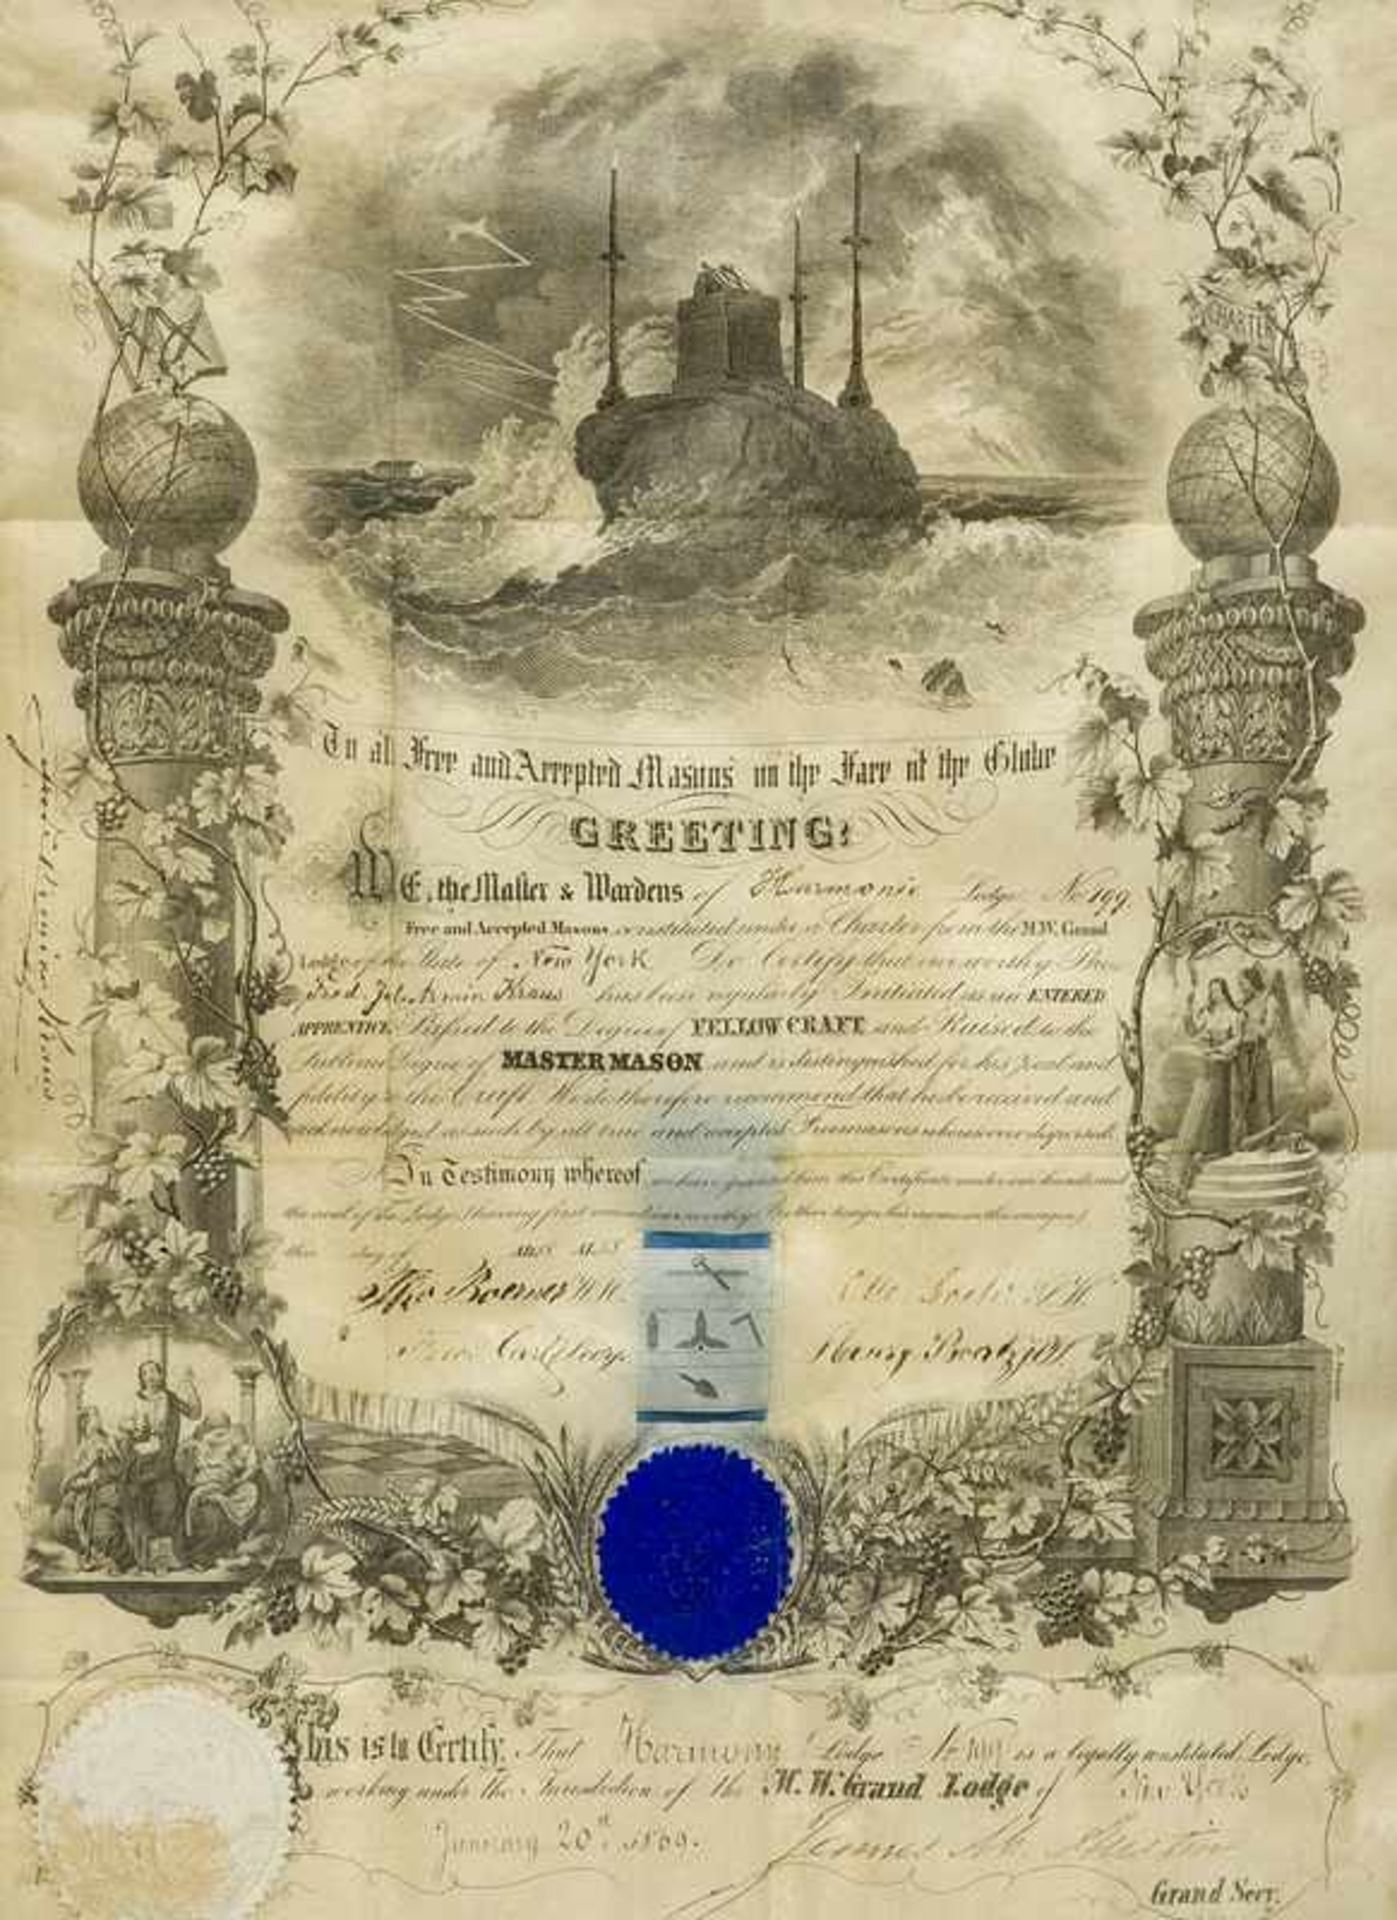 To all Free and Accepted Masons on the Face of the Globe
GREETING:
WE, the Master & Wardens of Harmonie Lodge No 199.
Free and Accepted Masons constituted under a Charter from the M.W. Grand
Lodge of the State of New York Do Certify that our worthy Bro
Kraus has been regularly Initiated as an ENTERED
APPRENTICE Passed to the Degree of FELLOW CRAFT and Raised to the
Sublime Degree of MASTER MASON and is distinguished for his Zeal and
fidelity to the Craft. We do therefore recommend that he be received and
acknowledged as such by all true and accepted Freemasons wheresoever dispersed.
In Testimony whereof we have granted him this Certificate under our hands and
the seal of the Lodge (having first
this day of
Henry
This is to Certify, That Harmony Lodge No 199 is a legally constituted Lodge,
working under the Jurisdiction of the M. W. Grand Lodge of New York
January 20th 1869.
James M. Austin
Grand Secr.
Kraus